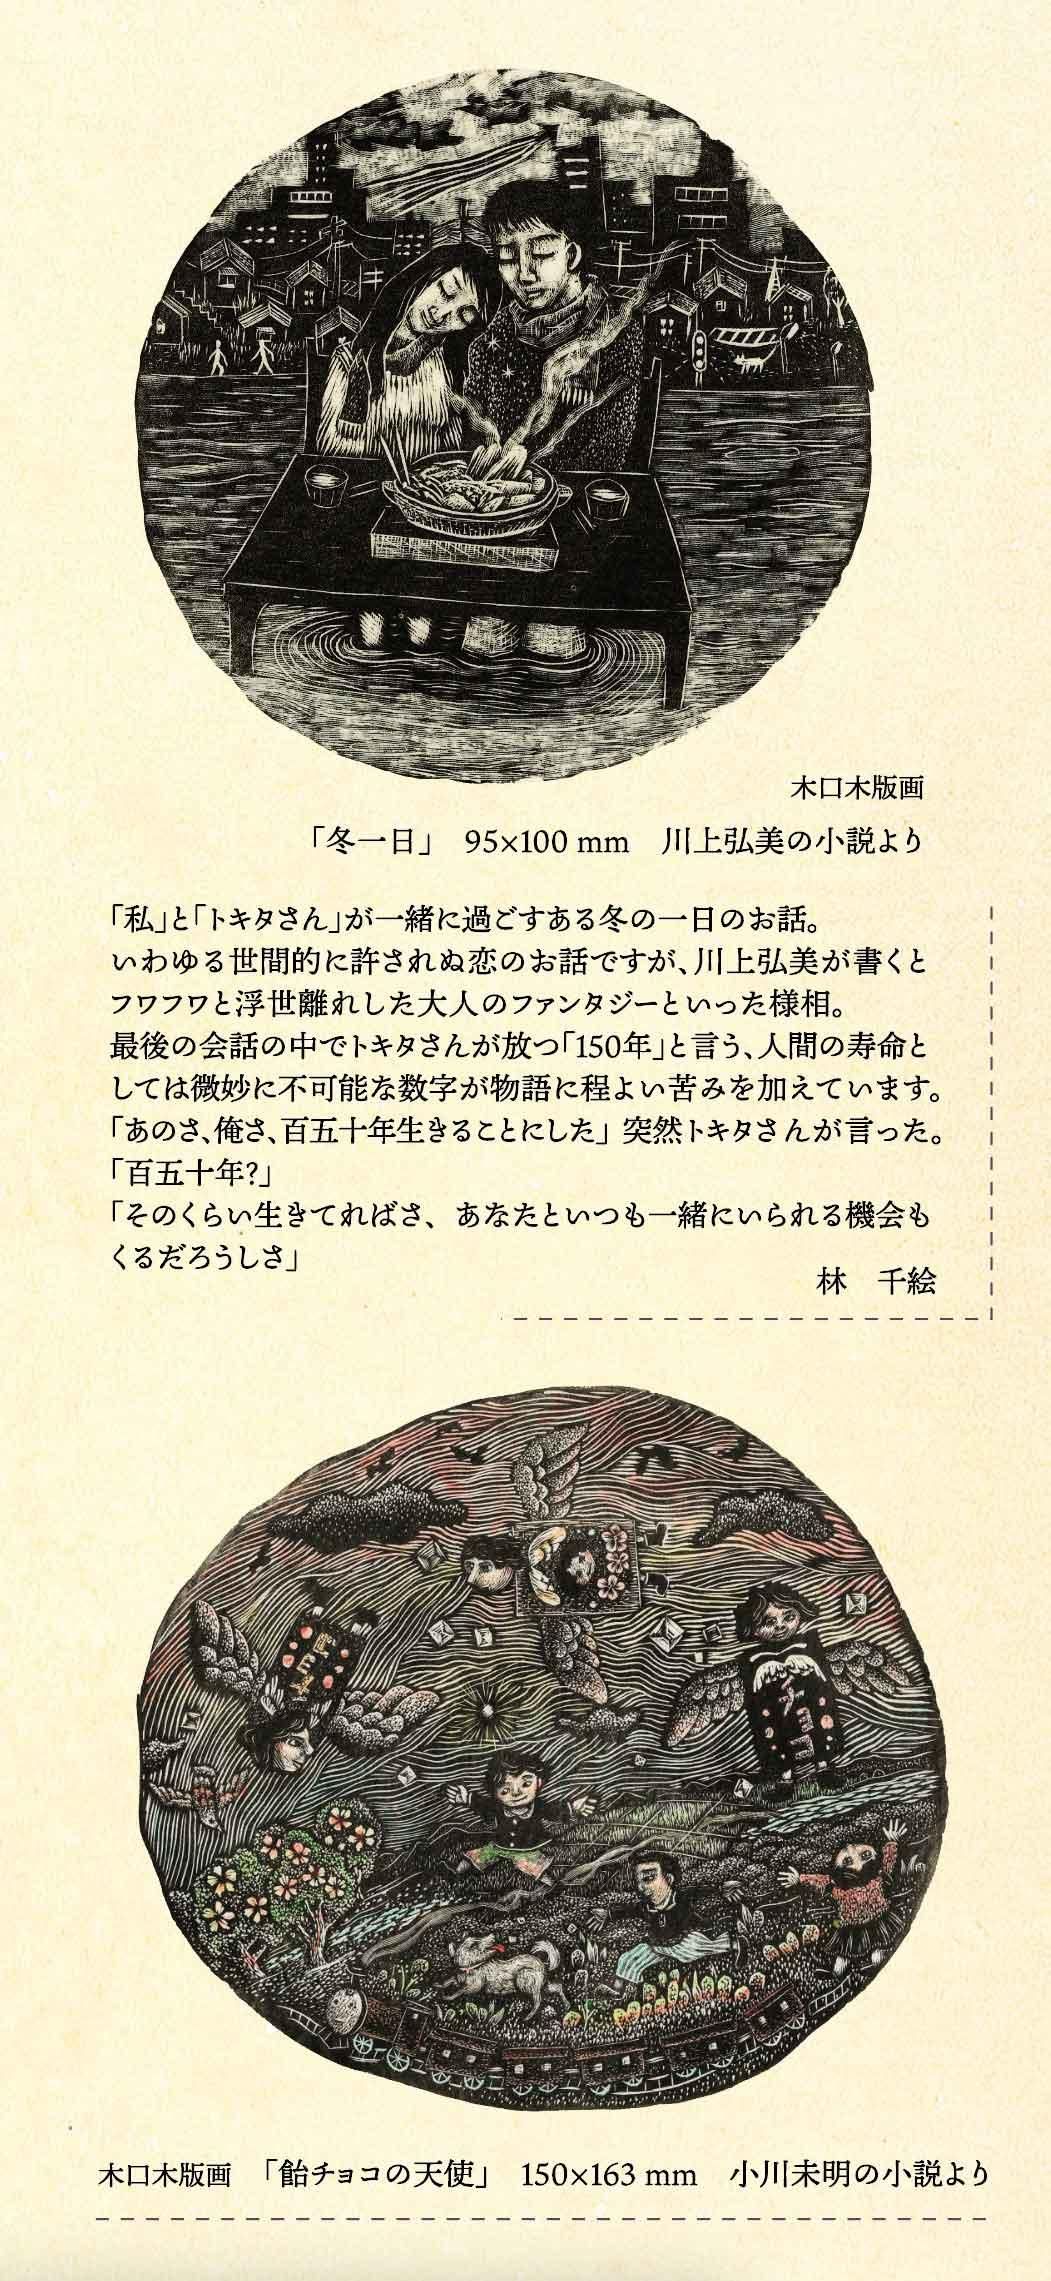 木口木版画
「冬一日」 95×100 mm 川上弘美の小説より
「私」と「トキタさん」が一緒に過ごすある冬の一日のお話。
いわゆる世間的に許されぬ恋のお話ですが、川上弘美が書くと
フワフワと浮世離れした大人のファンタジーといった様相。
最後の会話の中でトキタさんが放つ「150年」と言う、人間の寿命と
しては微妙に不可能な数字が物語に程よい苦みを加えています。
「あのさ、俺さ、百五十年生きることにした」 突然トキタさんが言った。
「百五十年?」
「そのくらい生きてればさ、あなたといつも一緒にいられる機会も
くるだろうしさ」
林 千絵
チョコ
木口木版画 「飴チョコの天使」 150×163 mm 小川未明の小説より